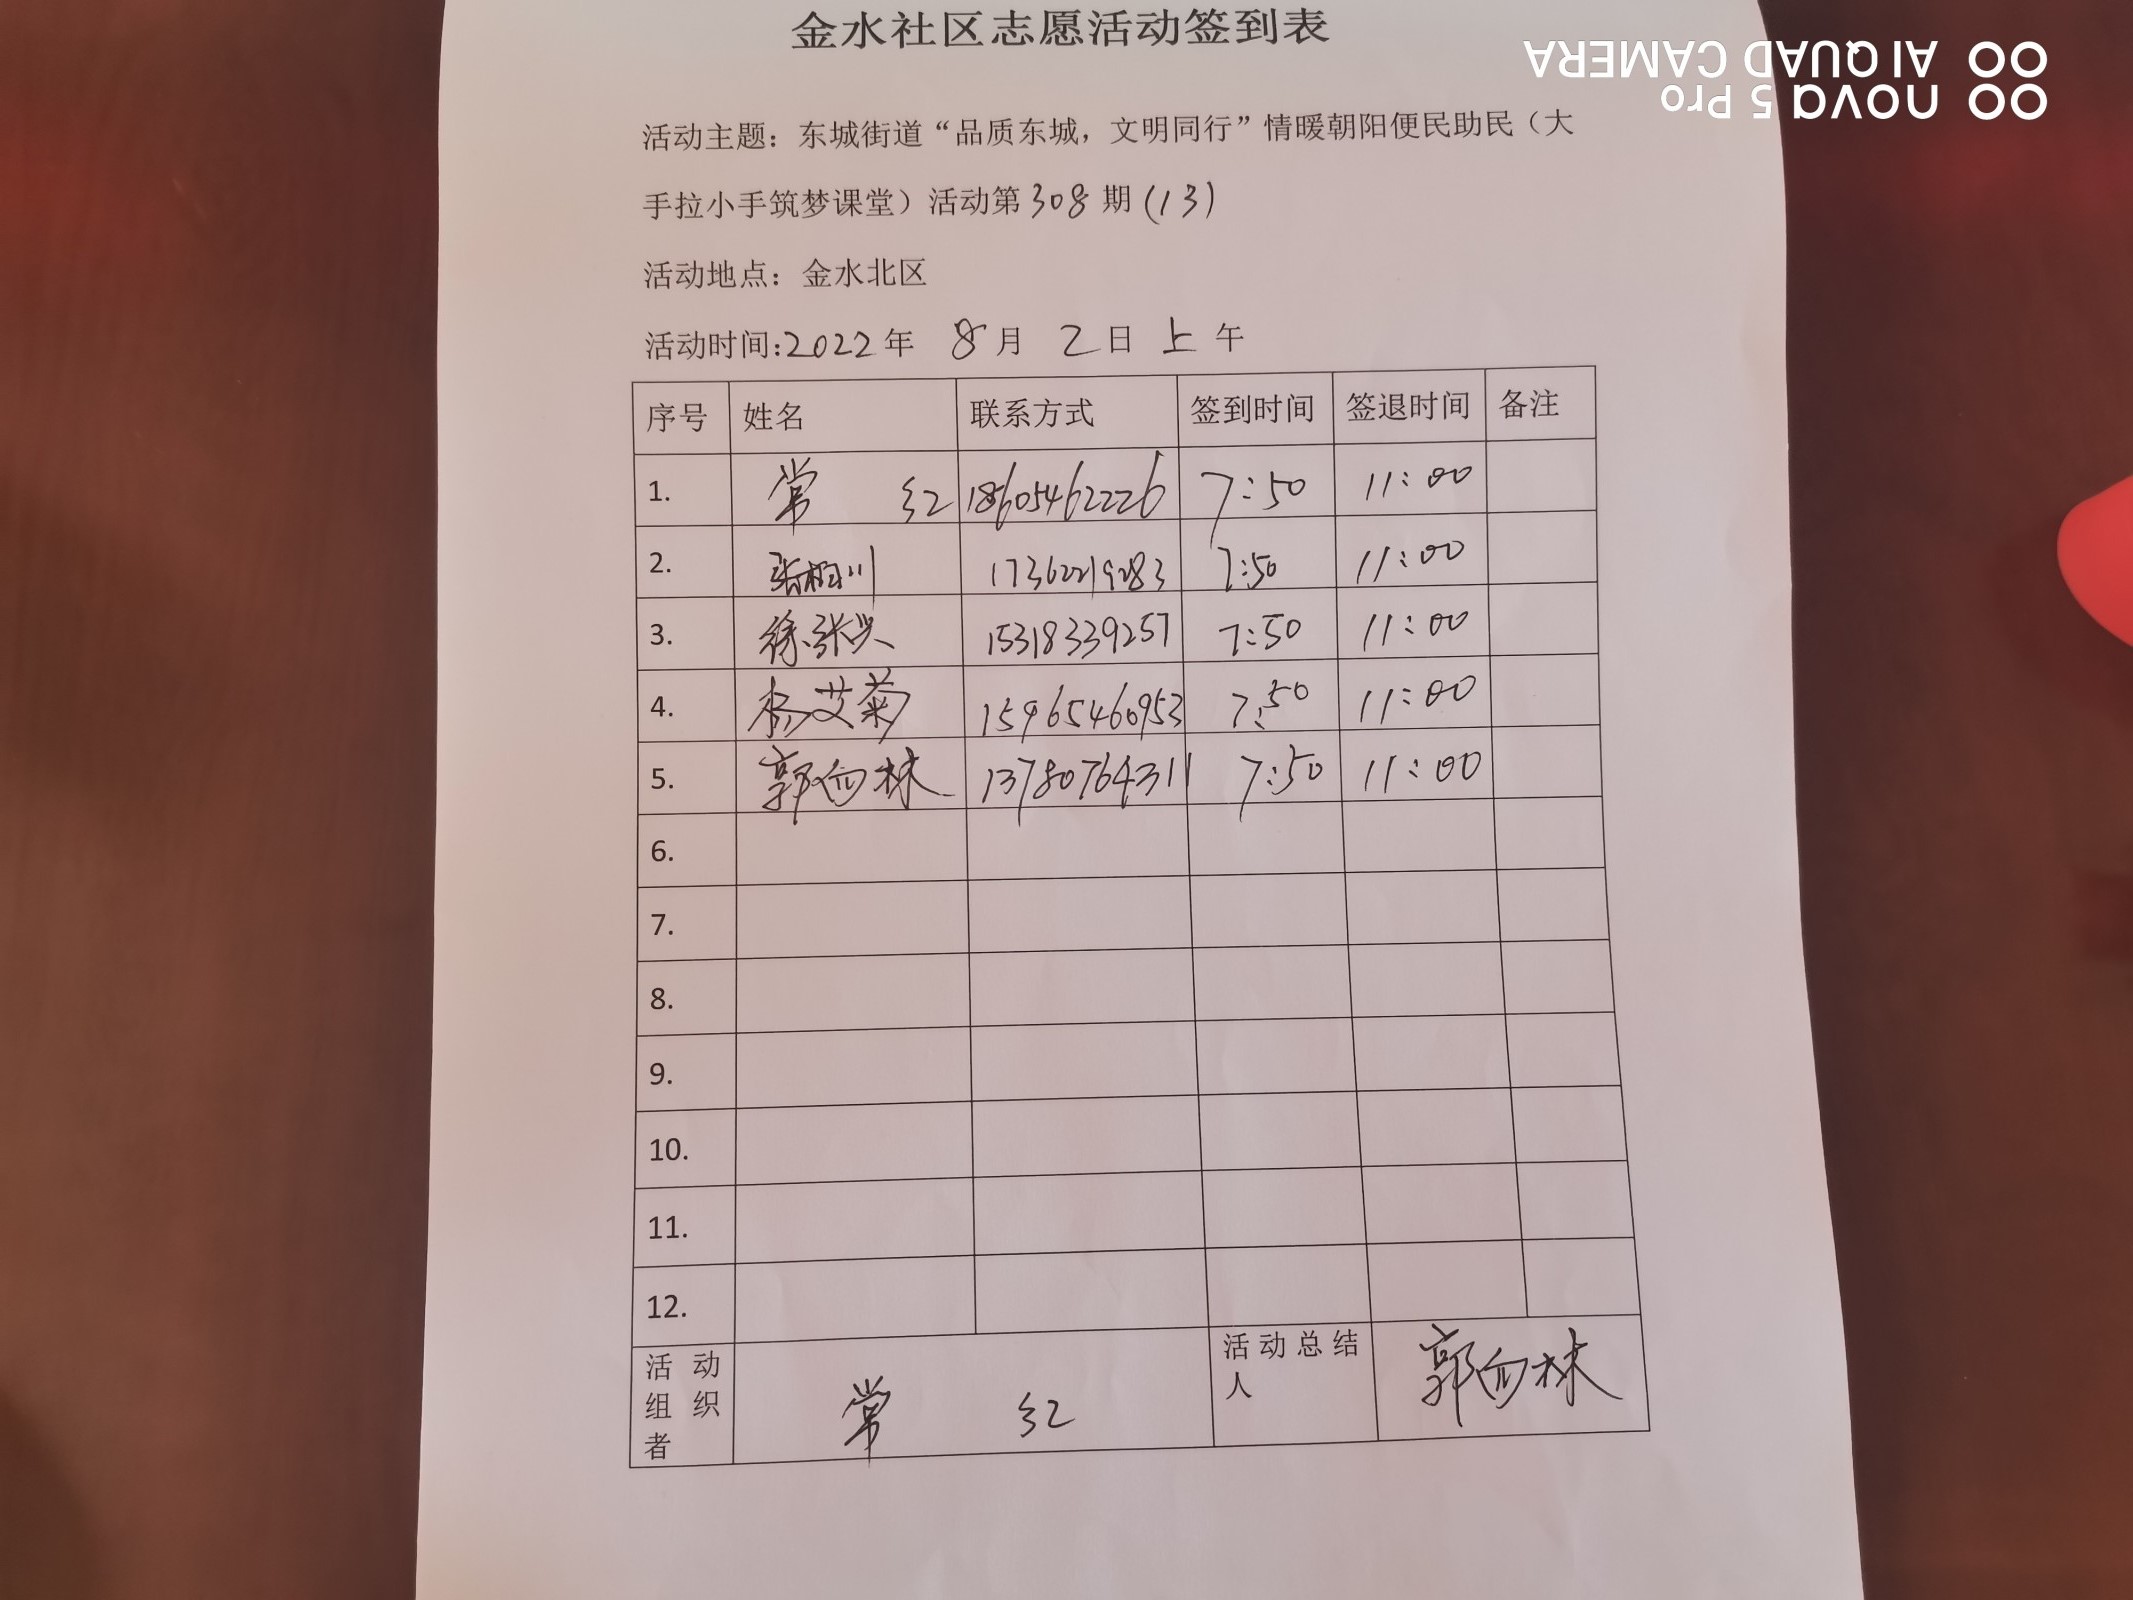 金水社区志愿活动签到表
活动主题：东城街道“品质东城，文明同行”情暖朝阳便民助民（大
手拉小手筑梦课堂）活动第308期(13)
活动地点：金水北区
活动时间:2022年 8月 2日 上午
序号 姓名 联系方式 签到时间 签退时间 备注
1. 常 红 18605462226 7:50 11:00
2. 17362219283 7:50 11:00
3. 15318339257 7:50 11:00
4. 杨艾菊 15965460953 7:50 11:00
5. 郭向林 13780764311 7:50 11:00
6.
7.
8.
9.
10.
11.
12.
活动组织者 常 红 活动总结人 郭向林
nova 5 Pro
AI QUAD CAMERA